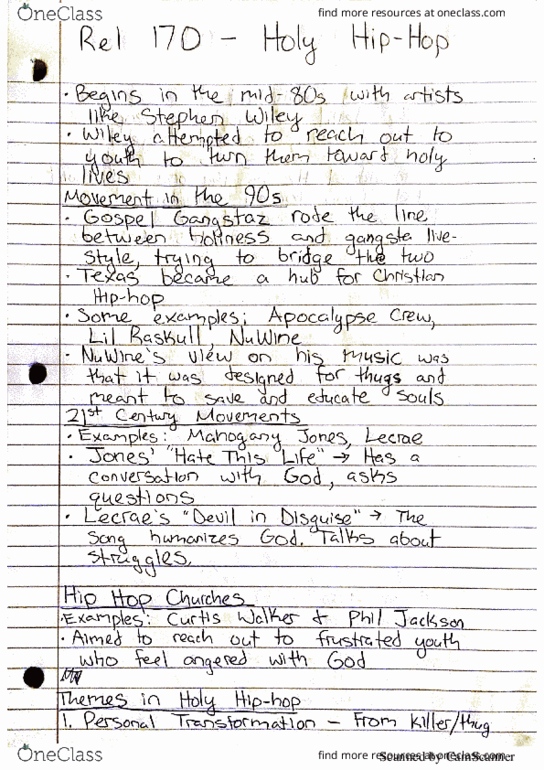 OneClass
find more resources at oneclass.com
Rel 170 - Holy Hip-Hop
· Begins in the mid-80s with artists
like Stephen Wiley
· Wiley attempted to reach out to
youth to turn them toward holy
lives
Movement in the 90s
· Gospel Gangstaz rode the line
between holiness and gangsta live-
style, trying to bridge the two
· Texas became a hub for Christian
Hip-hop
· Some examples; Apocalypse Crew,
Lil Raskull, NuWine
· NuWine's view on his music was
that it was designed for thugs and
meant to save and educate souls
21st Century Movements
· Examples: Mahogany Jones, Lecrae
· Jones' "Hate This Life" → Has a
conversation with God, asks
questions
· Lecrae's "Devil in Disguise" → The
song humanizes God. Talks about
struggles.
Hip Hop Churches
· Examples: Curtis Walker & Phil Jackson
· Aimed to reach out to frustrated youth
who feel angered with God
Themes in Holy Hip-hop
1. Personal Transformation - From killer/thug
OneClass
find more resources at oneclass.com
Scanned by CamScanner